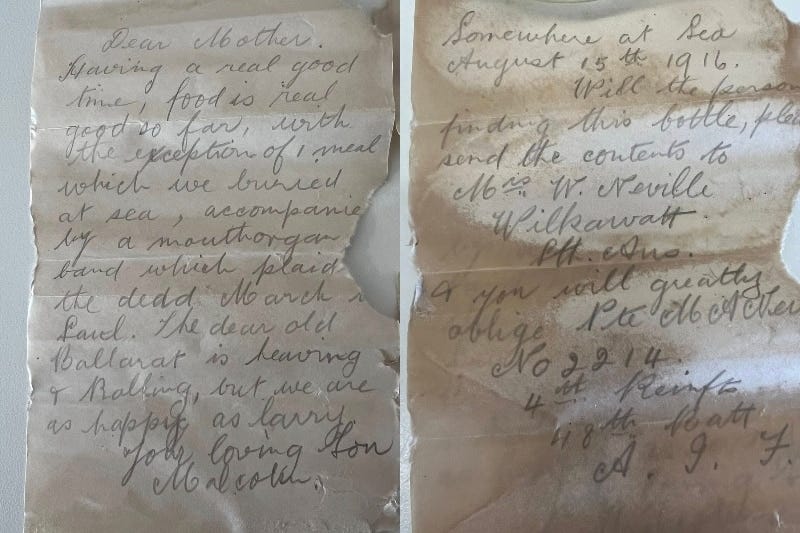 Dear Mother.
Having a real good
time, food is real
good so far, with
the exception of 1 meal
which we buried
at sea, accompanie
by a mouthorgan
band which plaid
the dedd March
Saul. The dear old
Ballarat is heaving
& Rolling, but we are
as happy as larry
Your loving Son
Malcolm.
Somewhere at Sea
August 15th 1916.
Will the person
finding this bottle, plea
send the contents to
Mrs W. Neville
Wilkawatt.
Sth. Aus.
& you will greatly
oblige Pte M A Nev
No 2214.
4th Reinfts
48th Batt
A. I. F.